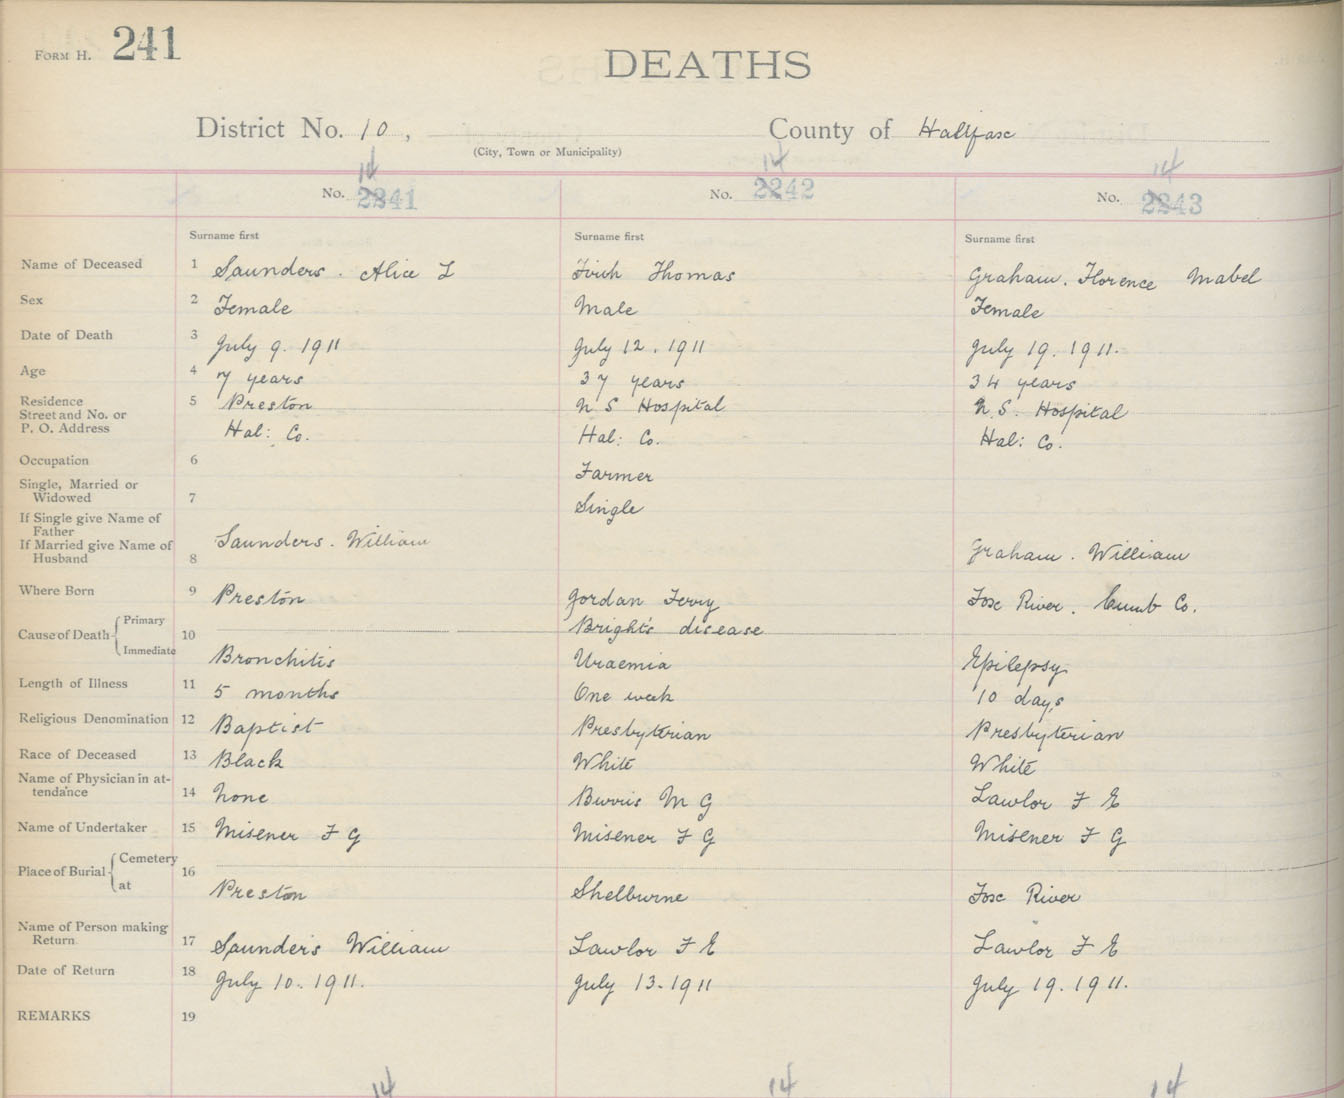 FORM H. 241
DEATHS
District No. 10, County of Halifax
(City, Town or Municipality)
14 14 14
No. 2241 No. 2242 No. 2243
Surname first Surname first Surname first
Name of Deceased 1 Saunders. Alice L Thomas Graham. Florence Mabel
Sex 2 Female Male Female
Date of Death 3 July 9. 1911 July 12. 1911 July 19. 1911.
Age 4 7 years 37 years 34 years
Residence 5 Preston N S Hospital N.S. Hospital
Street and No. or
P. O. Address Hal: Co. Hal: Co. Hal: Co.
Occupation 6 Farmer
Single, Married or
Widowed 7 Single
If Single give Name of
Father
If Married give Name of Saunders. William Graham. William
Husband 8
Where Born 9 Preston Jordan Ferry Fox River. Cumb Co.
Cause of Death Primary 10 Bright's disease
Immediate Bronchitis Uraemia Epilepsy
Length of Illness 11 5 months One week 10 days
Religious Denomination 12 Baptist Presbyterian Presbyterian
Race of Deceased 13 Black White White
Name of Physician in at-
tendance 14 None Burris M G Lawlor F E
Name of Undertaker 15 Misener F G Misener F G Misener F G
Place of Burial Cemetery 16
at Preston Shelburne Fox River
Name of Person making
Return 17 Saunders William Lawlor F E Lawlor F E
Date of Return 18 July 10. 1911. July 13. 1911 July 19. 1911.
REMARKS 19
14 14 14